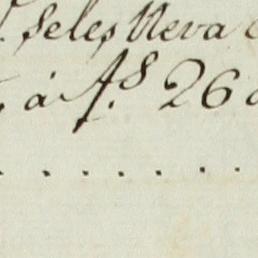 seles Neva
à f.s 26
. . . . . . .